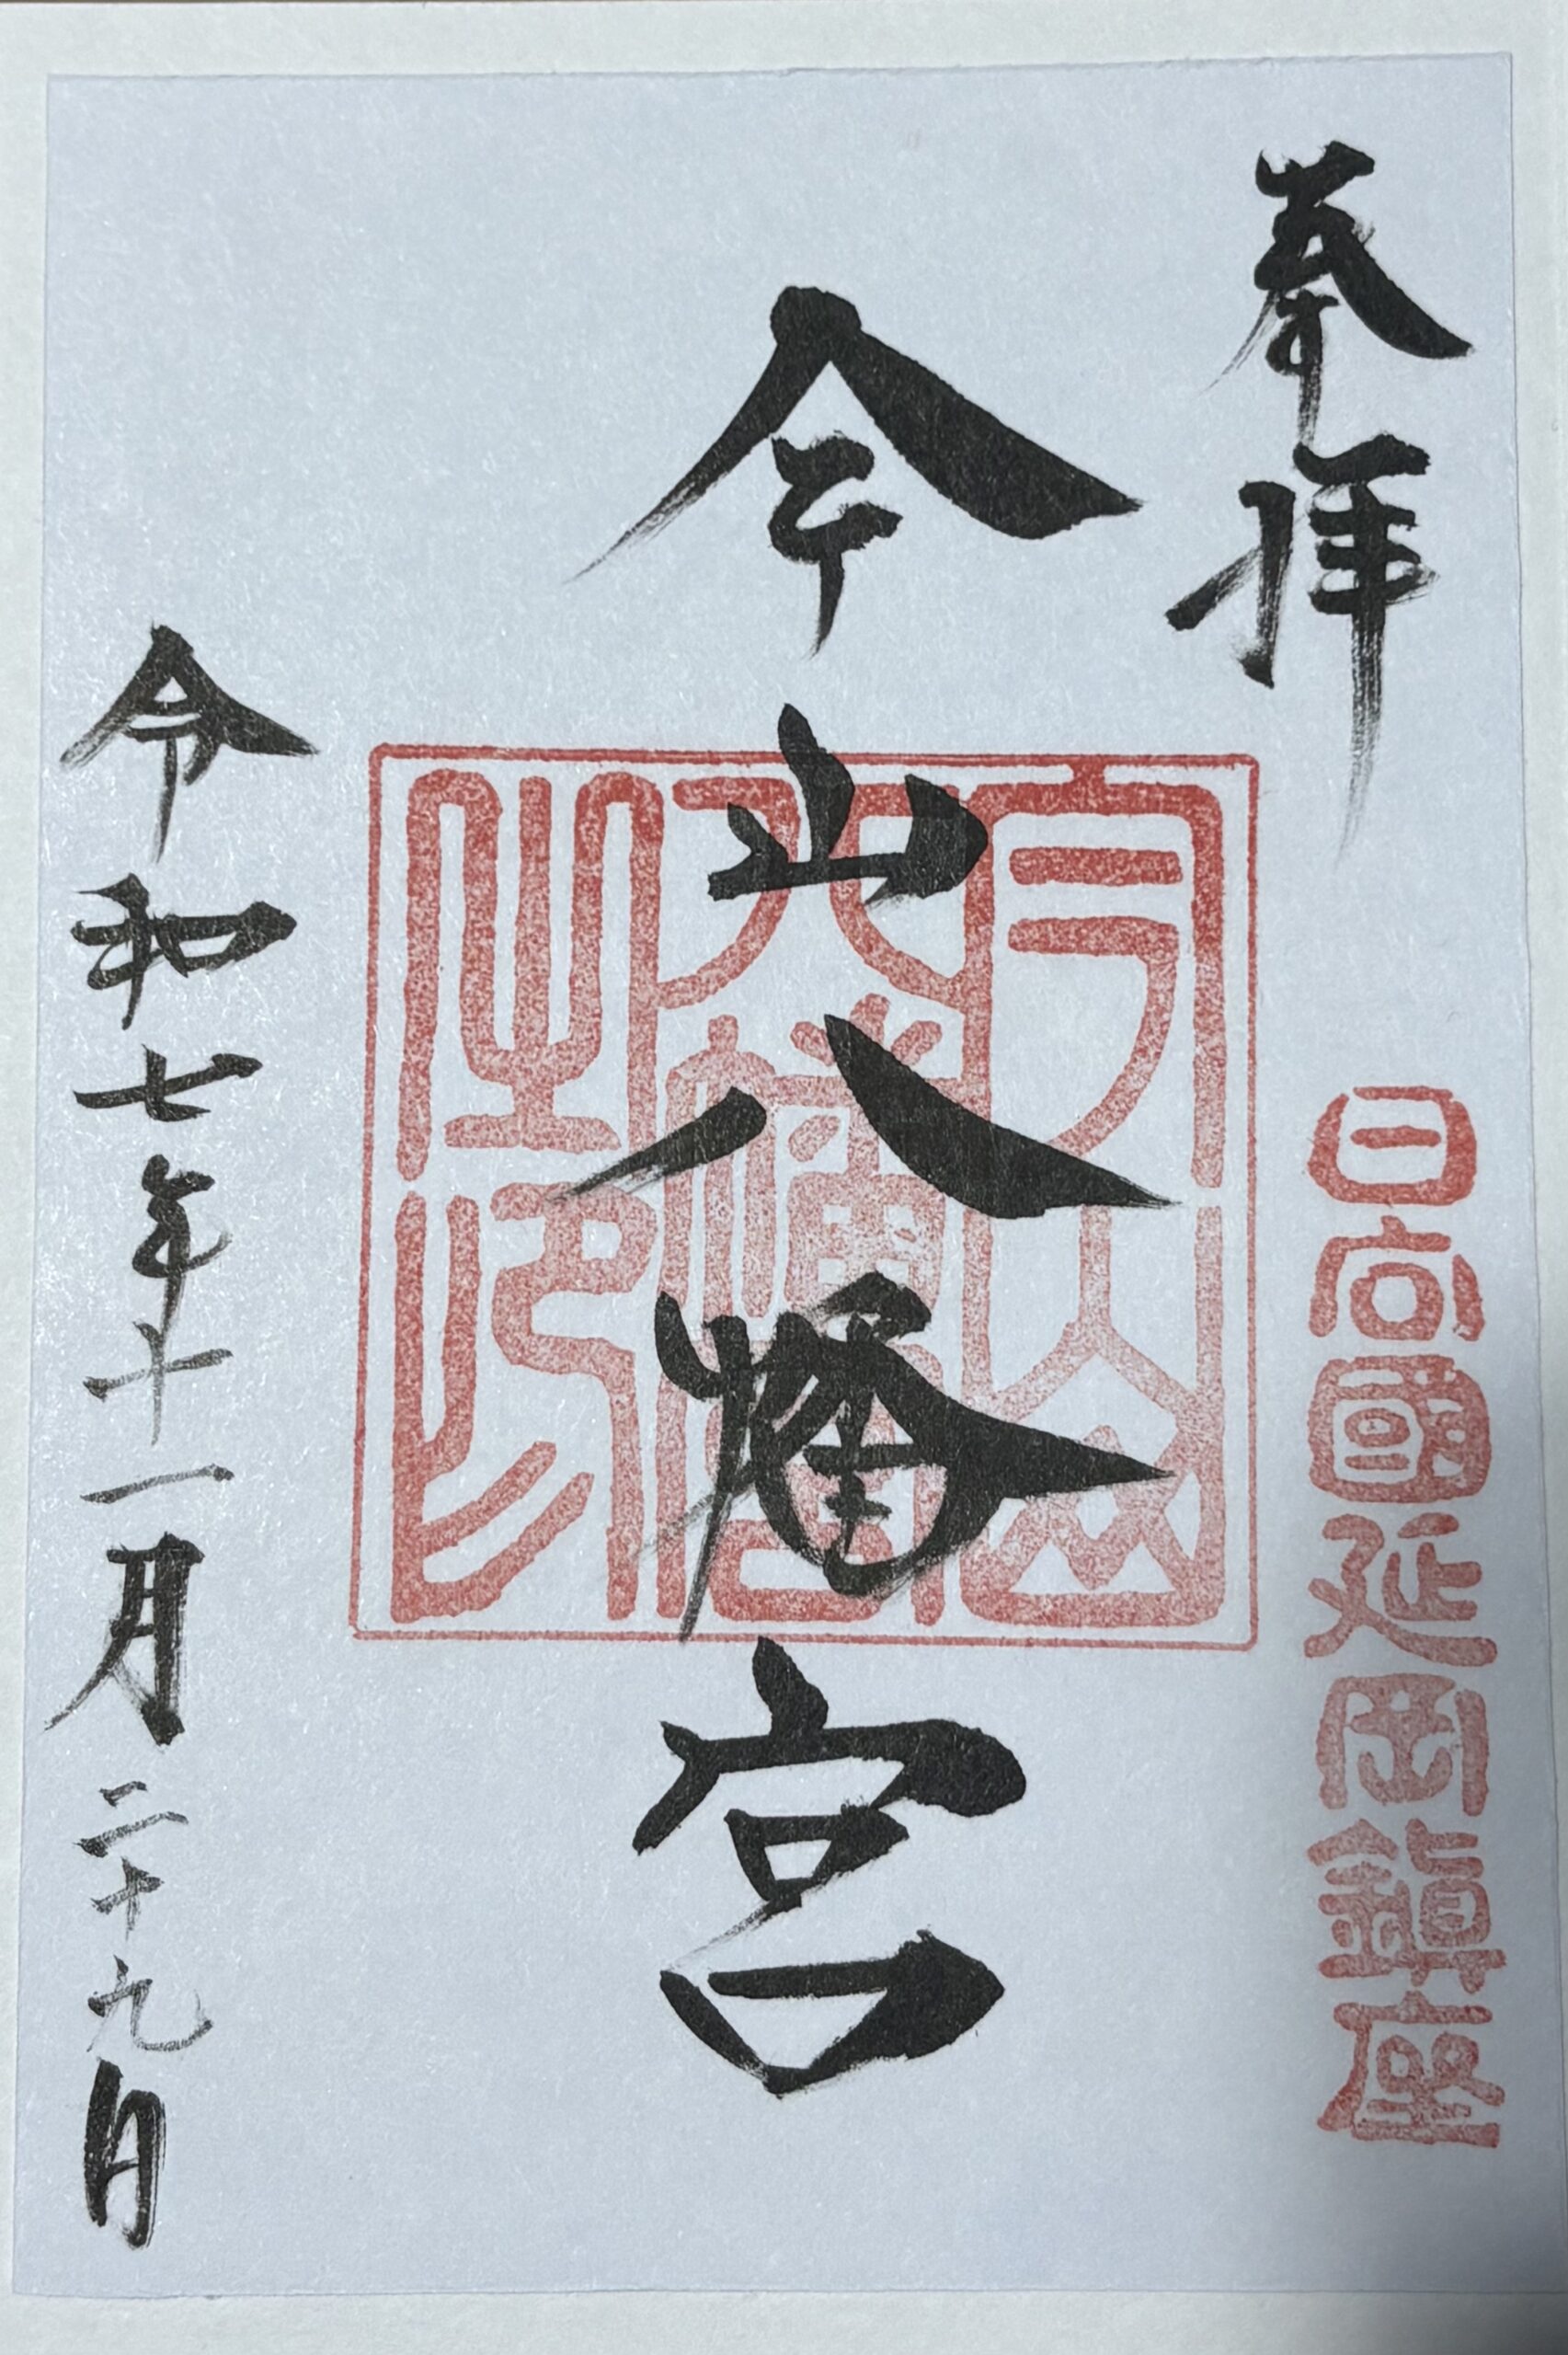 奉拝
日向國延岡鎮座
今山八幡宮
今山八幡宮之印
令和七年十一月二十九日